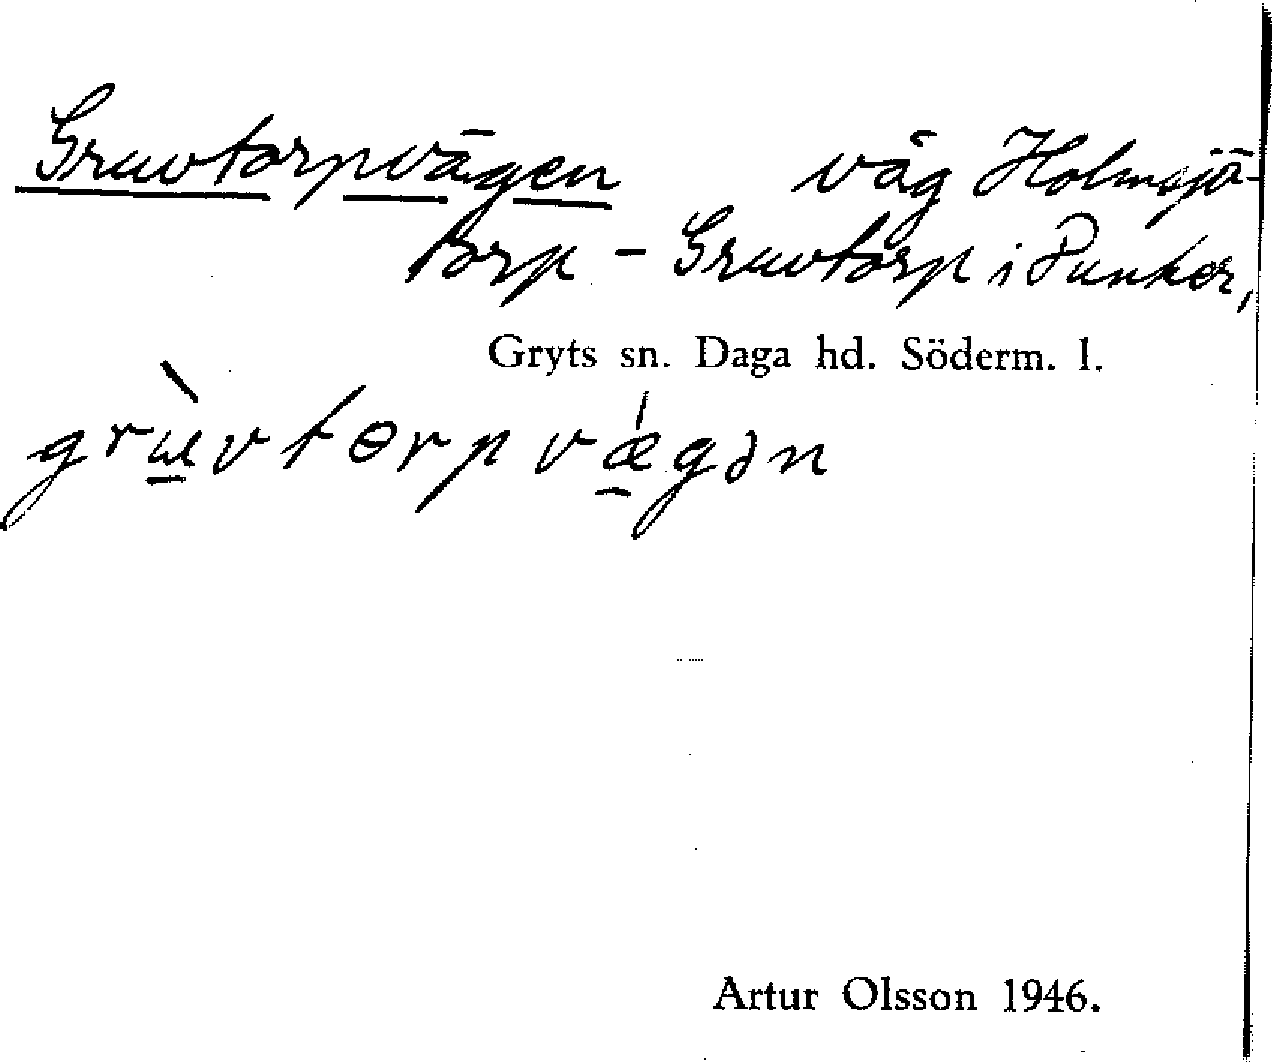 Gruvtorpvägen väg Holmsjö-
torp - Gruvtorp i Dunker,
Gryts sn. Daga hd. Söderm. l.
grɯ̀vtɵrpvǽgən
Artur Olsson 1946.